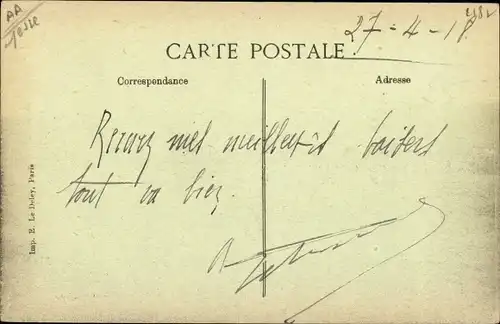 27-4-18
CARTE POSTALE
Correspondance
Adresse
Recevez mes meilleurs baisers
tout va bien
Imp. E. Le Deley, Paris